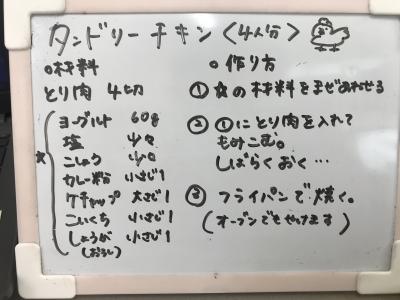 タンドリーチキン〈4人分〉
○材料
とり肉 4切
☆
ヨーグルト 60g
塩 少々
こしょう 少々
カレー粉 小さじ1
ケチャップ 大さじ1
こいくち 小さじ1
しょうが 小さじ1
(おろし)
○作り方
① ☆の材料をまぜあわせる
② ①にとり肉を入れて
もみこむ。
しばらくおく…
③ フライパンで焼く。
(オーブンでもやけます)